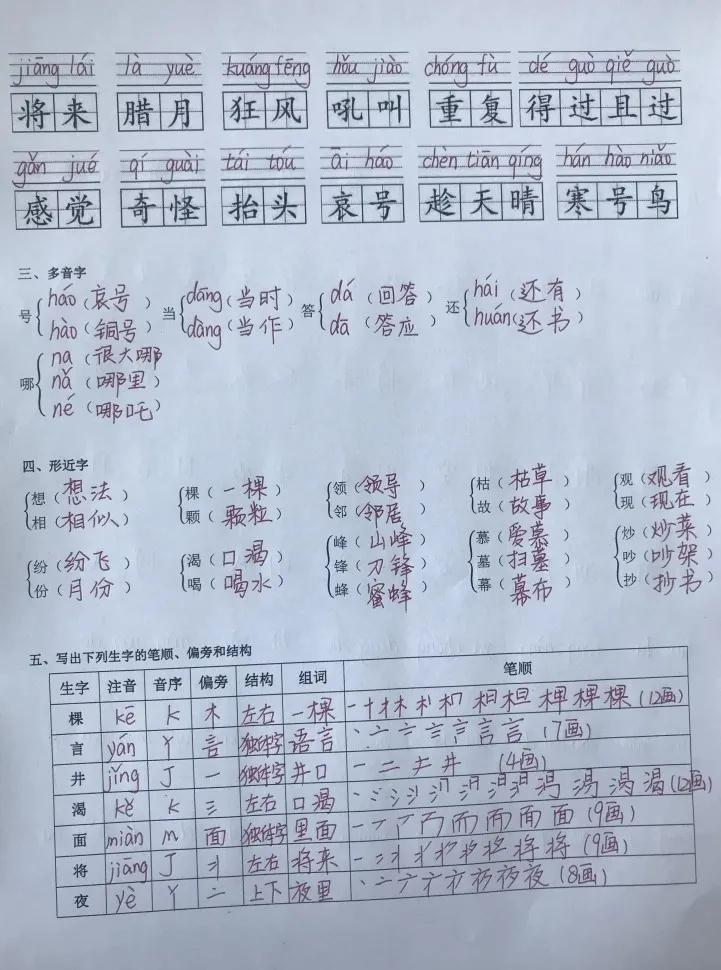 jiāng lái là yuè kuáng fēng hǒu jiào chóng fù dé guò qiě guò
将来 腊月 狂风 吼叫 重复 得过且过
gǎn jué qí guài tái tóu āi háo chèn tiān qíng hán hào niǎo
感觉 奇怪 抬头 哀号 趁天晴 寒号鸟
三、多音字
号{háo(哀号) hào(铜号) 当{dāng(当时) dàng(当作) 答{dá(回答) dā(答应) 还{hái(还有) huán(还书)
哪{na(很大哪) nǎ(哪里) né(哪吒)
四、形近字
想(想法) 棵(一棵) 领(领导) 枯(枯草) 观(观看)
相(相似) 颗(颗粒) 邻(邻居) 故(故事) 现(现在)
纷(纷飞) 渴(口渴) 峰(山峰) 慕(爱慕) 炒(炒菜)
份(月份) 喝(喝水) 锋(刀锋) 墓(扫墓) 吵(吵架)
蜂(蜜蜂) 幕(幕布) 抄(抄书)
五、写出下列生字的笔顺、偏旁和结构
生字 注音 音序 偏旁 结构 组词 笔顺
棵 kē K 木 左右 一棵 (12画)
言 yán Y 言 独体字 语言 (7画)
井 jǐng J 一 独体字 井口 一 二 キ 井 (4画)
渴 kě k 氵 左右 口渴 (12画)
面 miàn m 面 独体字 里面 (9画)
将 jiāng J 丬 左右 将来 (9画)
夜 yè Y 亠 上下 夜里 (8画)